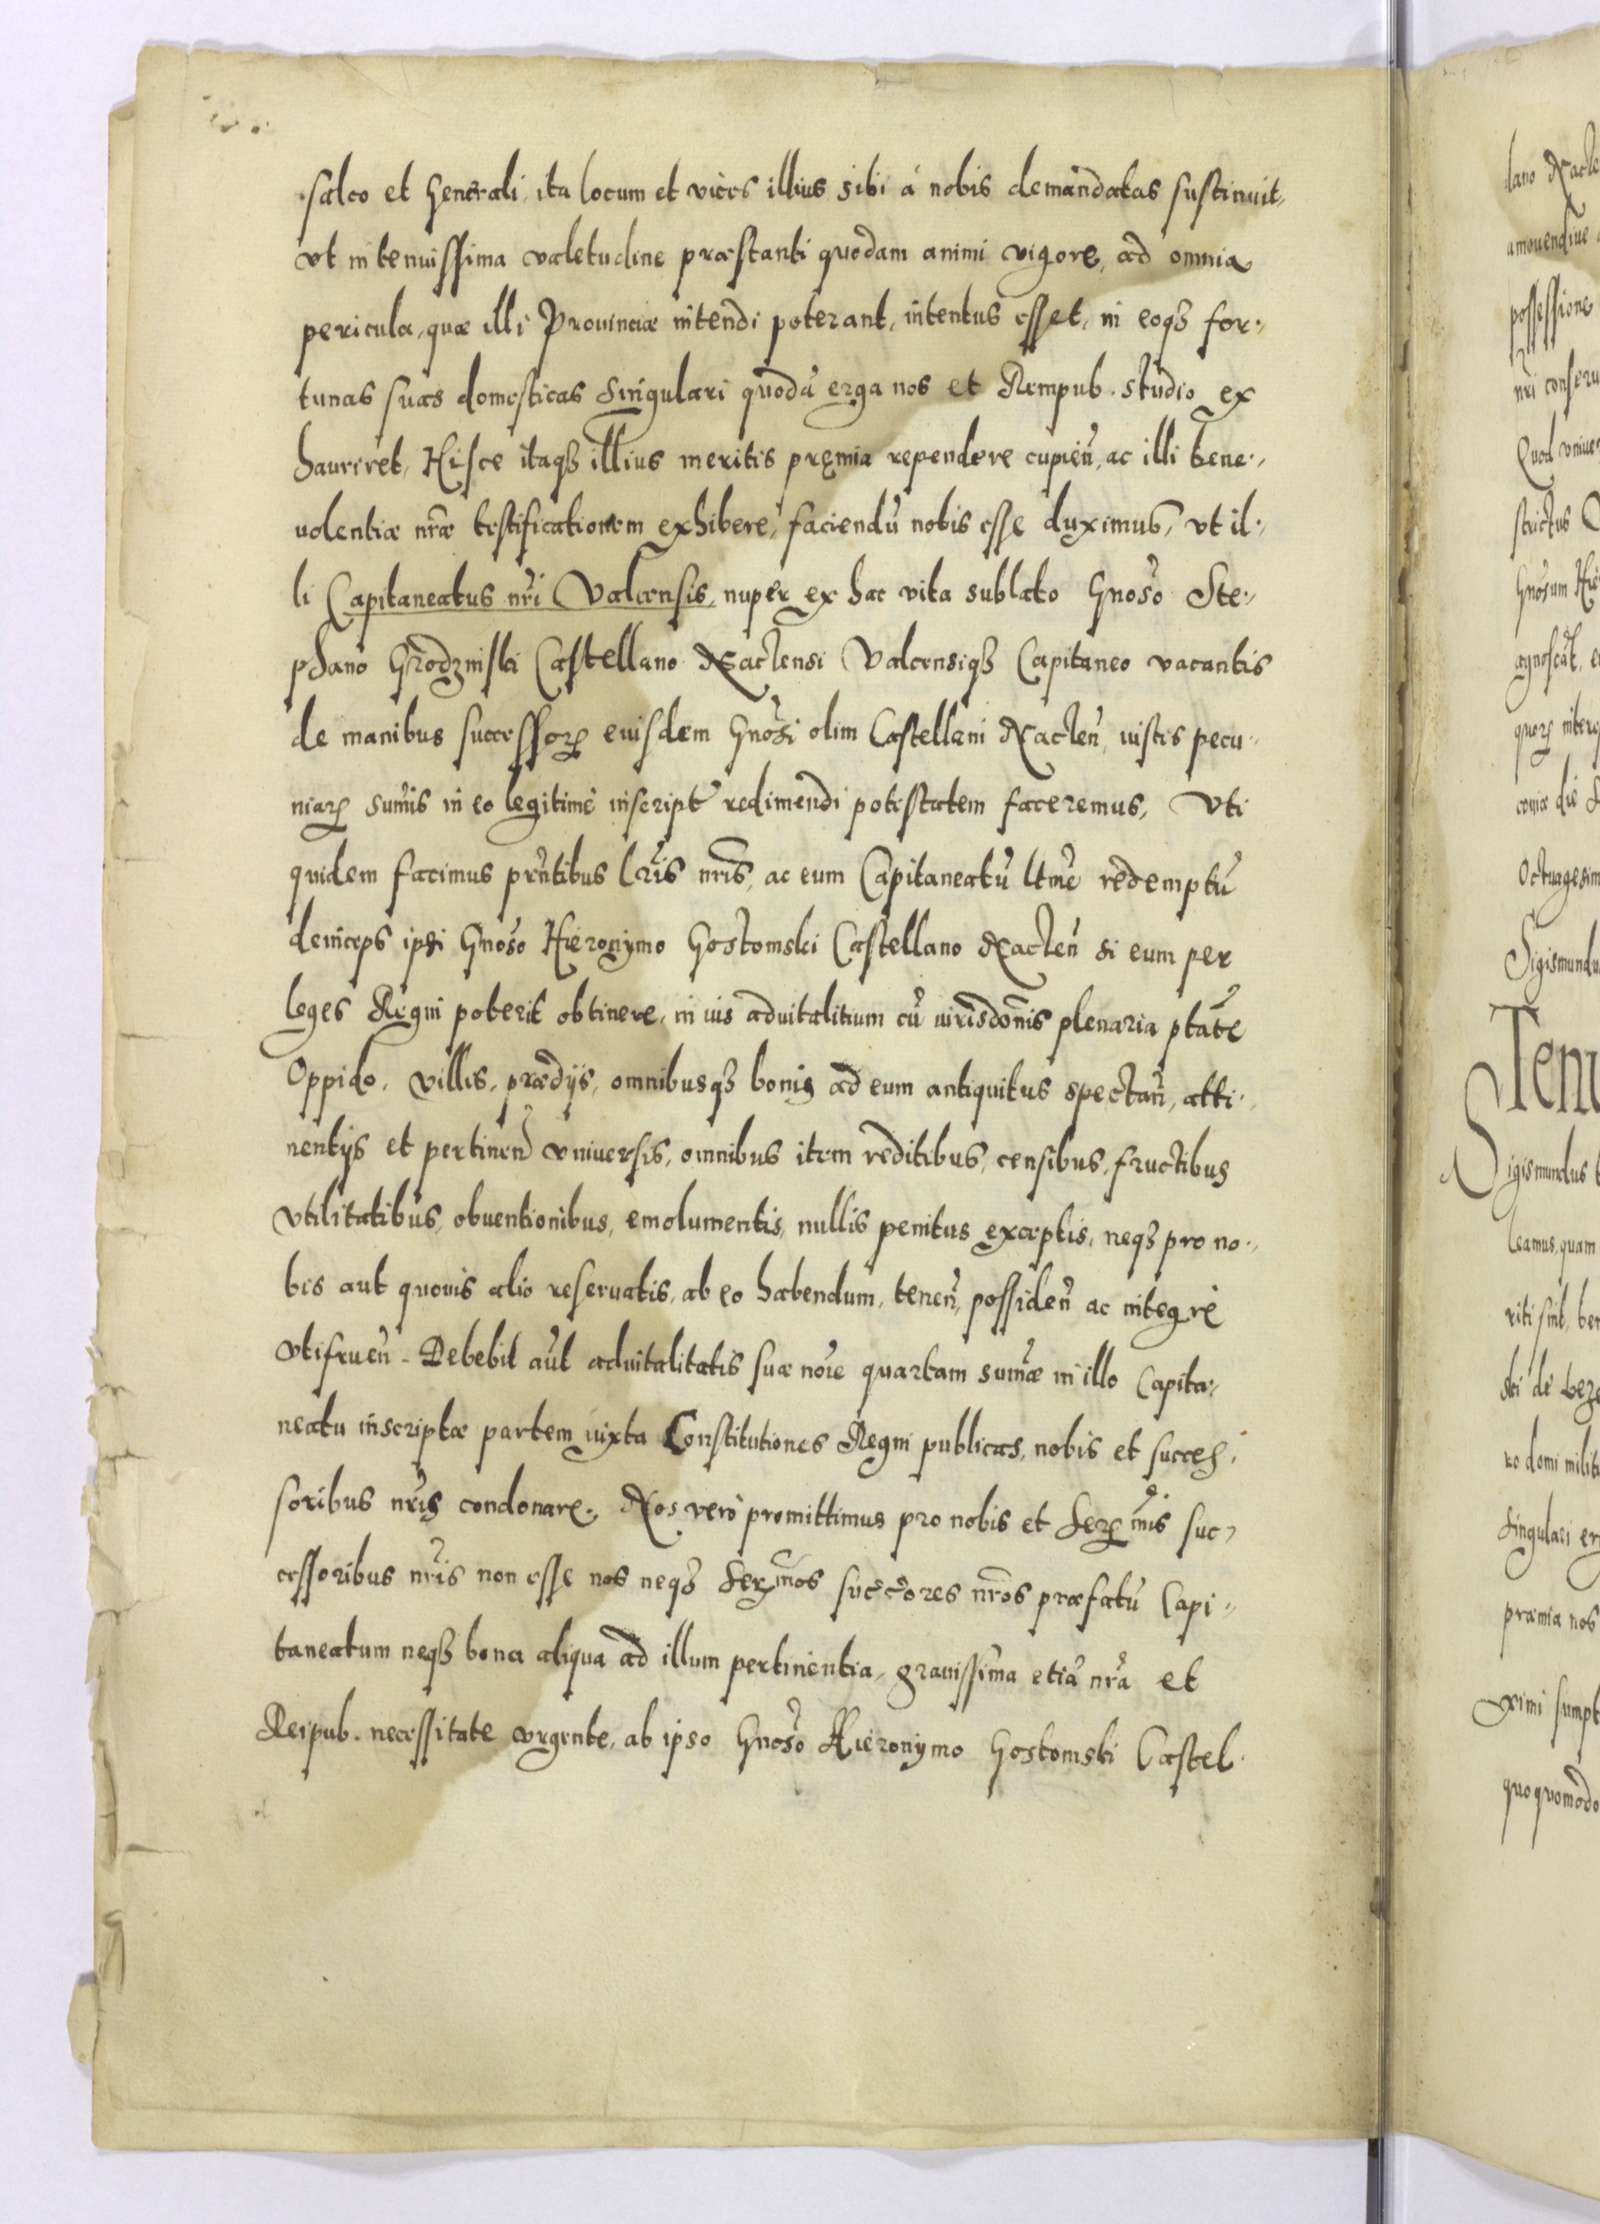 salco et Generali, ita locum et vices illius sibi à nobis demandatas sustinuit,
vt in tenuissima valetudine præstanti quodam animi vigore, ad omnia
pericula, quæ illi Prouinciæ intendi poterant, intentus esset, in eoqꝫ for-
tunas suas domesticas singulari quodã erga nos et Rempub. studio ex
hauriret, Hisce itaqꝫ illius meritis pręmia rependere cupień, ac illi bene-
uolentiæ nr̃æ testificationem exhibere, faciendũ nobis esse duximus, vt il-
li Capitaneatus nr̃i Valcensis, nuper ex hac vita sublato Gnoso Ste-
phano Grodzinski Castellano Naclensi Valcensiqꝫ Capitaneo vacantis
de manibus successorꝝ eiusdem Gnosi olim Castellani Naclen̄, iustis pecu-
niarꝝ sum̃is in eo legitimè inscript redimendi potestatem faceremus, Vti
quidem facimus pr̃ntibus lr̃is nr̃is, ac eum Capitaneatũ ltm̃e redemptũ
deinceps ipsi Gnoso Hieronymo Gostomski Castellano Naclen̄ si eum per
leges Regni poterit obtinere, in ius aduitalitium cũ iurisdõnis plenaria ptãte
Oppido, villis, prædijs, omnibusqꝫ bonis ad eum antiquitus spectan̄, atti-
nentijs et pertinen̄ vniuersis, omnibus item reditibus, censibus, fructibus
vtilitatibus, obuentionibus, emolumentis, nullis penitus exceptis, neqꝫ pro no-
bis aut quouis alio reseruatis, ab eo habendum, tenen̄, possiden̄ ac integrè
vtifruen̄. Debebit aũt aduitalitatis suæ nõie quartam sum̃æ in illo Capita-
neatu inscriptæ partem iuxta Constitutiones Regni publicas, nobis et succes-
soribus nr̃is condonare. Nos verò promittimus pro nobis et Serꝫmis suc-
cessoribus nr̃is non esse nos neqꝫ Serꝫmos succ̃ores nr̃os præfatũ Capi-
taneatum neqꝫ bona aliqua ad illum pertinentia, grauissima etiã nr̃a et
Reipub. necessitate vrgente, ab ipso Gnoso Hieronymo Gostomski Castel-
lano Nacle
amouendiue
possessione
nr̃i conseru
Quod vniuer
strictus
Gnosum Hie
agnoscãt, e
quorꝝ inter
die
Octuagesim
Sigismundu
Sigismundus
leamus, quam
riti sint, ben
ski de
ro domi milit
singulari er
præmia nos
ximi sumpt
quoquomodo